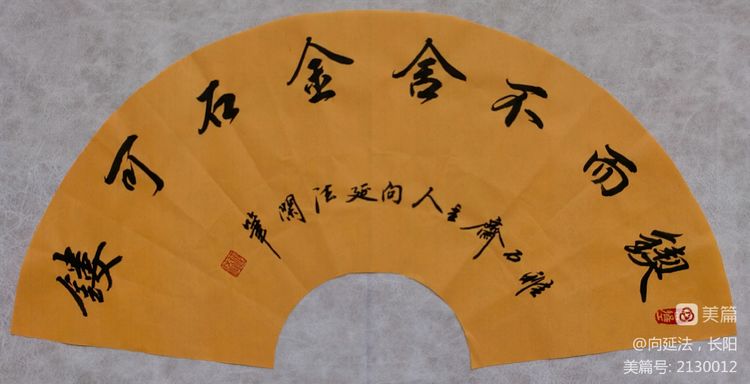 锲而不舍金石可镂
雅石斋主人向延法闲笔
美篇
@向延法，长阳
美篇号: 2130012